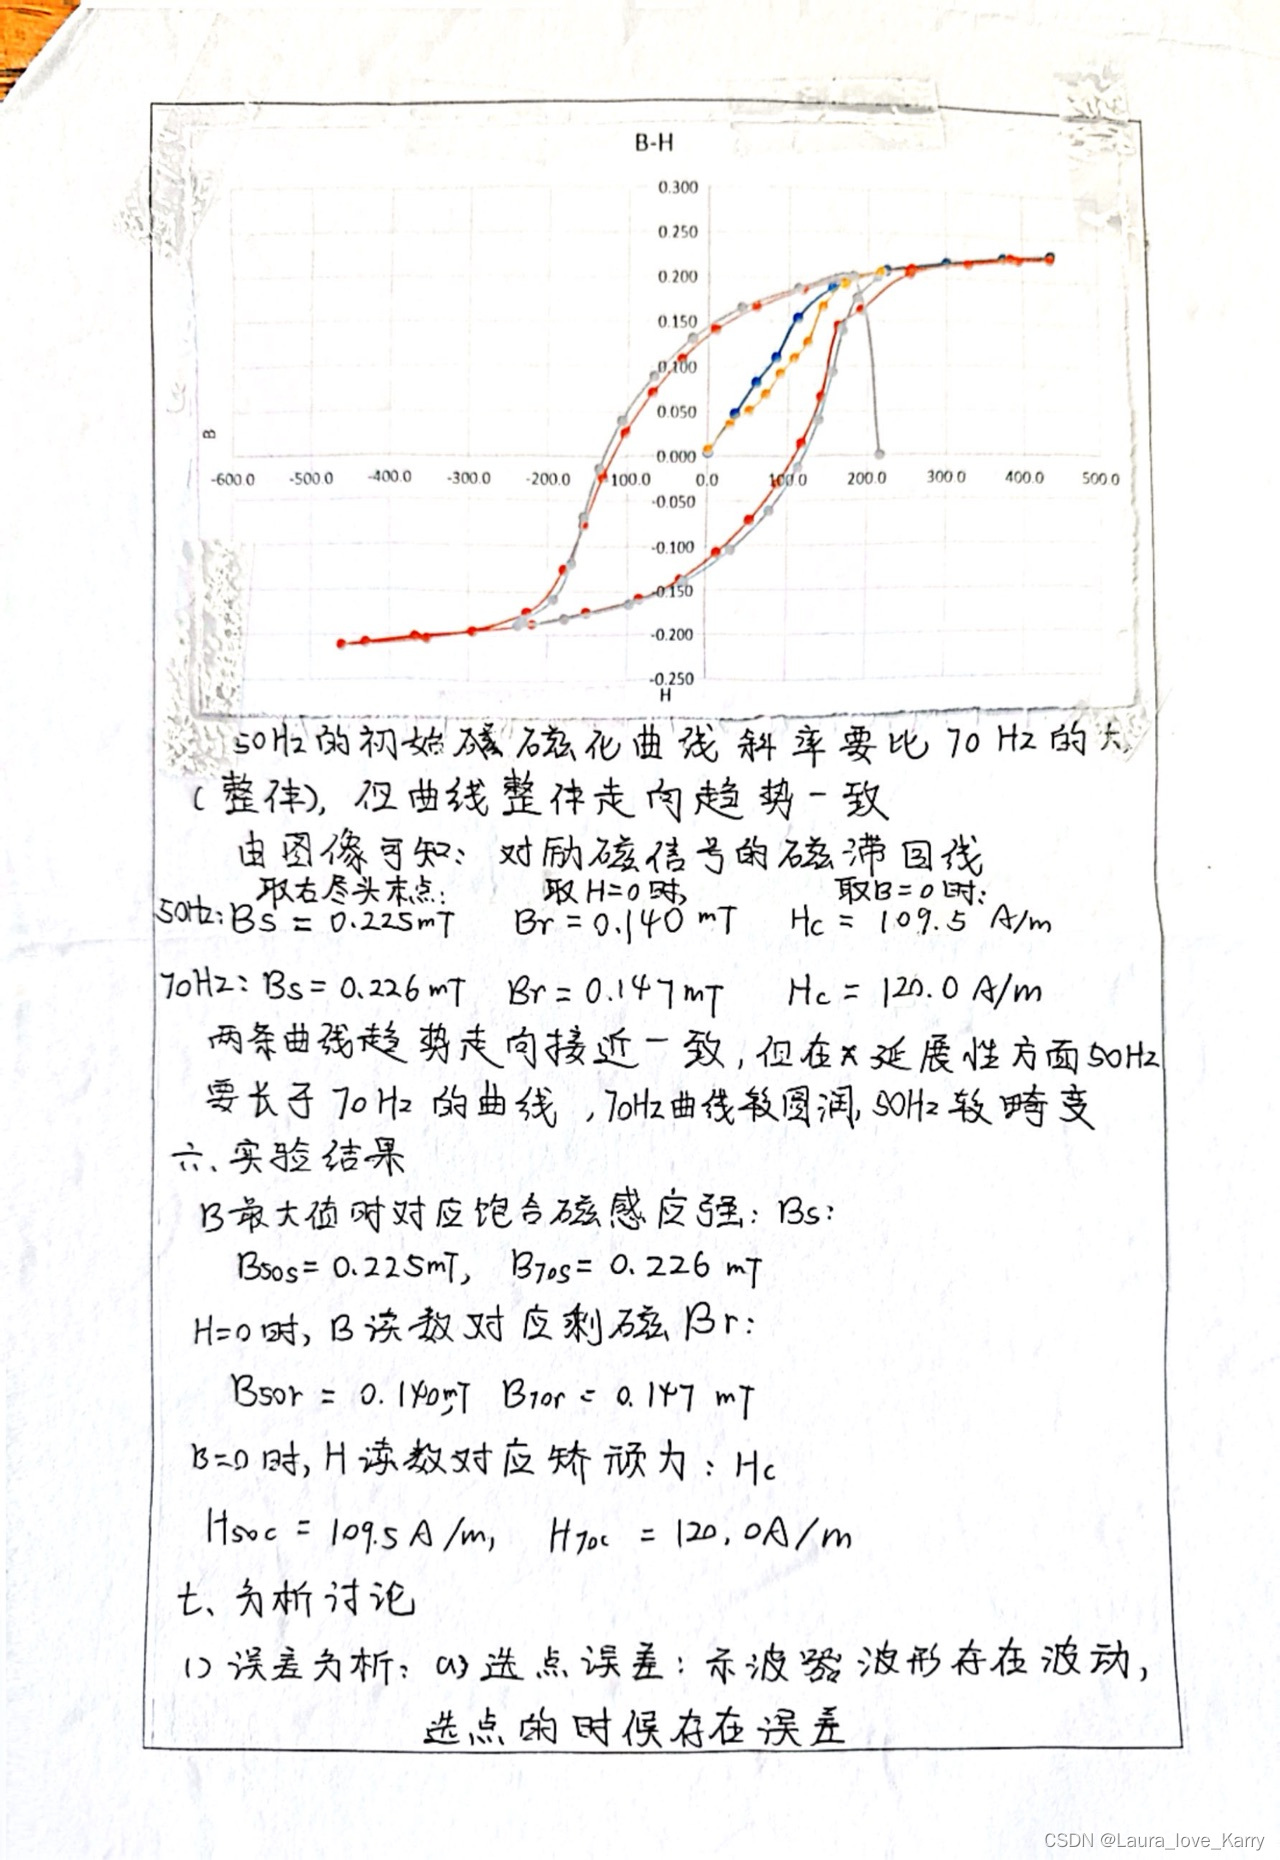 B-H
0.300
0.250
0.200
0.150
0.100
0.050
B
0.000
-600.0 -500.0 -400.0 -300.0 -200.0 -100.0 0.0 100.0 200.0 300.0 400.0 500.0
-0.050
-0.100
-0.150
-0.200
-0.250
H
50Hz的初始磁化曲线斜率要比70Hz的大
(整体),但曲线整体走向趋势一致
由图像可知:对励磁信号的磁滞回线
取右尽头末点: 取H=0时, 取B=0时:
50Hz:Bs=0.225mT Br=0.140mT Hc=109.5 A/m
70Hz:Bs=0.226mT Br=0.147mT Hc=120.0 A/m
两条曲线趋势走向接近一致,但在延展性方面50Hz
要长于70Hz的曲线,70Hz曲线较圆润,50Hz较畸变
六、实验结果
B最大值时对应饱合磁感应强:Bs:
B50s=0.225mT, B70s=0.226 mT
H=0时,B读数对应剩磁Br:
B50r=0.140mT, B70r=0.147 mT
B=0时,H读数对应矫顽力:Hc
H50c=109.5A/m, H70c=120.0A/m
七、分析讨论
1)误差分析:a)选点误差:示波器波形存在波动,
选点的时候存在误差
CSDN @Laura_love_Karry